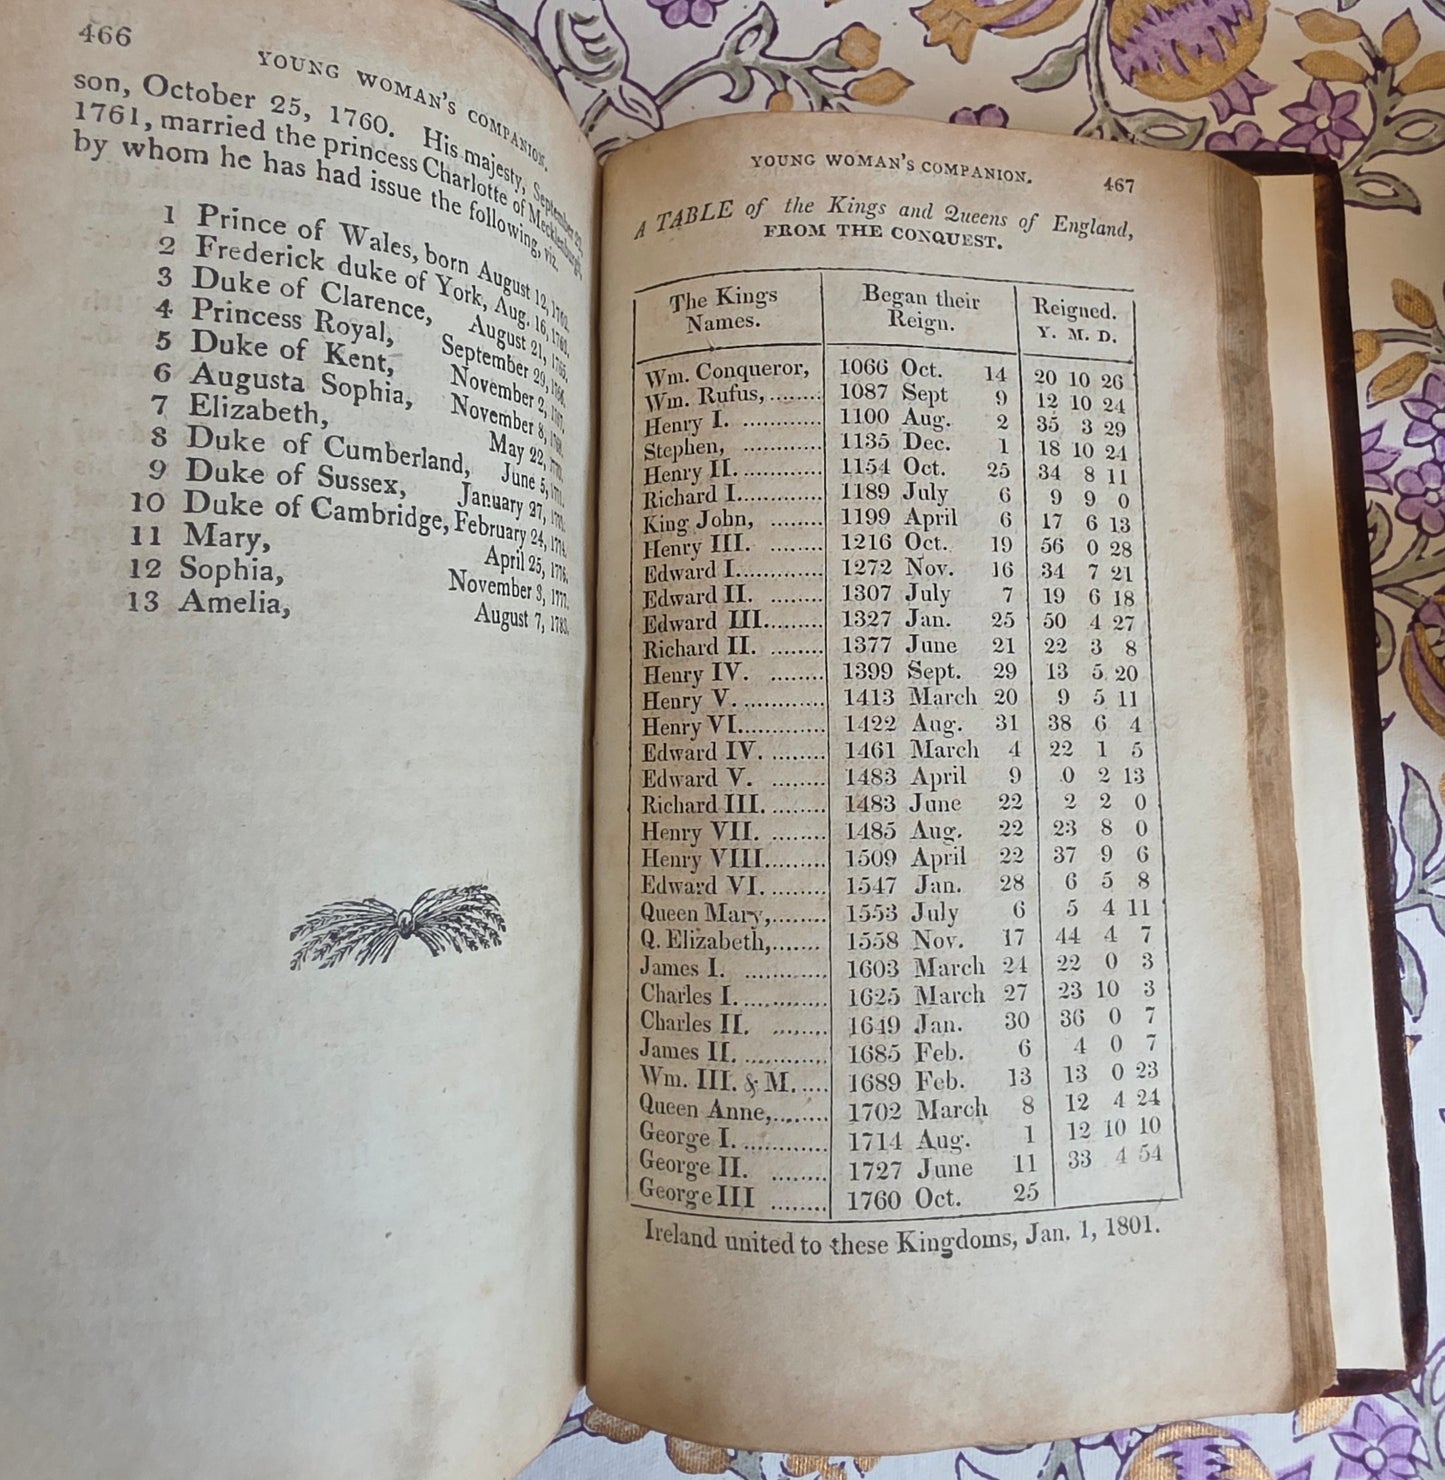 466
YOUNG WOMAN'S COMPANION.
son, October 25, 1760. His majesty, September 22,
1761, married the princess Charlotte of Mecklenburgh,
by whom he has had issue the following, viz.
1 Prince of Wales, born August 12, 1762.
2 Frederick duke of York, Aug. 16, 1763.
3 Duke of Clarence, August 21, 1765.
4 Princess Royal, September 29, 1766.
5 Duke of Kent, November 2, 1767.
6 Augusta Sophia, November 8, 1768.
7 Elizabeth, May 22, 1770.
8 Duke of Cumberland, June 5, 1771.
9 Duke of Sussex, January 27, 1773.
10 Duke of Cambridge, February 24, 1774.
11 Mary, April 25, 1776.
12 Sophia, November 3, 1777.
13 Amelia, August 7, 1783.
YOUNG WOMAN'S COMPANION. 467
A TABLE of the Kings and Queens of England,
FROM THE CONQUEST.
The Kings Began their Reigned.
Names. Reign. Y. M. D.
Wm. Conqueror, 1066 Oct. 14 20 10 26
Wm. Rufus,........ 1087 Sept 9 12 10 24
Henry I. ............ 1100 Aug. 2 35 3 29
Stephen, ............ 1135 Dec. 1 18 10 24
Henry II............. 1154 Oct. 25 34 8 11
Richard I............. 1189 July 6 9 9 0
King John, ........ 1199 April 6 17 6 13
Henry III. ........ 1216 Oct. 19 56 0 28
Edward I............. 1272 Nov. 16 34 7 21
Edward II. ........ 1307 July 7 19 6 18
Edward III......... 1327 Jan. 25 50 4 27
Richard II. ........ 1377 June 21 22 3 8
Henry IV. ........ 1399 Sept. 29 13 5 20
Henry V. ............ 1413 March 20 9 5 11
Henry VI............. 1422 Aug. 31 38 6 4
Edward IV. ........ 1461 March 4 22 1 5
Edward V. ........ 1483 April 9 0 2 13
Richard III. ........ 1483 June 22 2 2 0
Henry VII. ........ 1485 Aug. 22 23 8 0
Henry VIII......... 1509 April 22 37 9 6
Edward VI. ........ 1547 Jan. 28 6 5 8
Queen Mary,........ 1553 July 6 5 4 11
Q. Elizabeth,....... 1558 Nov. 17 44 4 7
James I. ............ 1603 March 24 22 0 3
Charles I............. 1625 March 27 23 10 3
Charles II. ........ 1649 Jan. 30 36 0 7
James II. ............ 1685 Feb. 6 4 0 7
Wm. III. & M..... 1689 Feb. 13 13 0 23
Queen Anne,........ 1702 March 8 12 4 24
George I............. 1714 Aug. 1 12 10 10
George II. ........ 1727 June 11 33 4 54
George III ........ 1760 Oct. 25
Ireland united to these Kingdoms, Jan. 1, 1801.